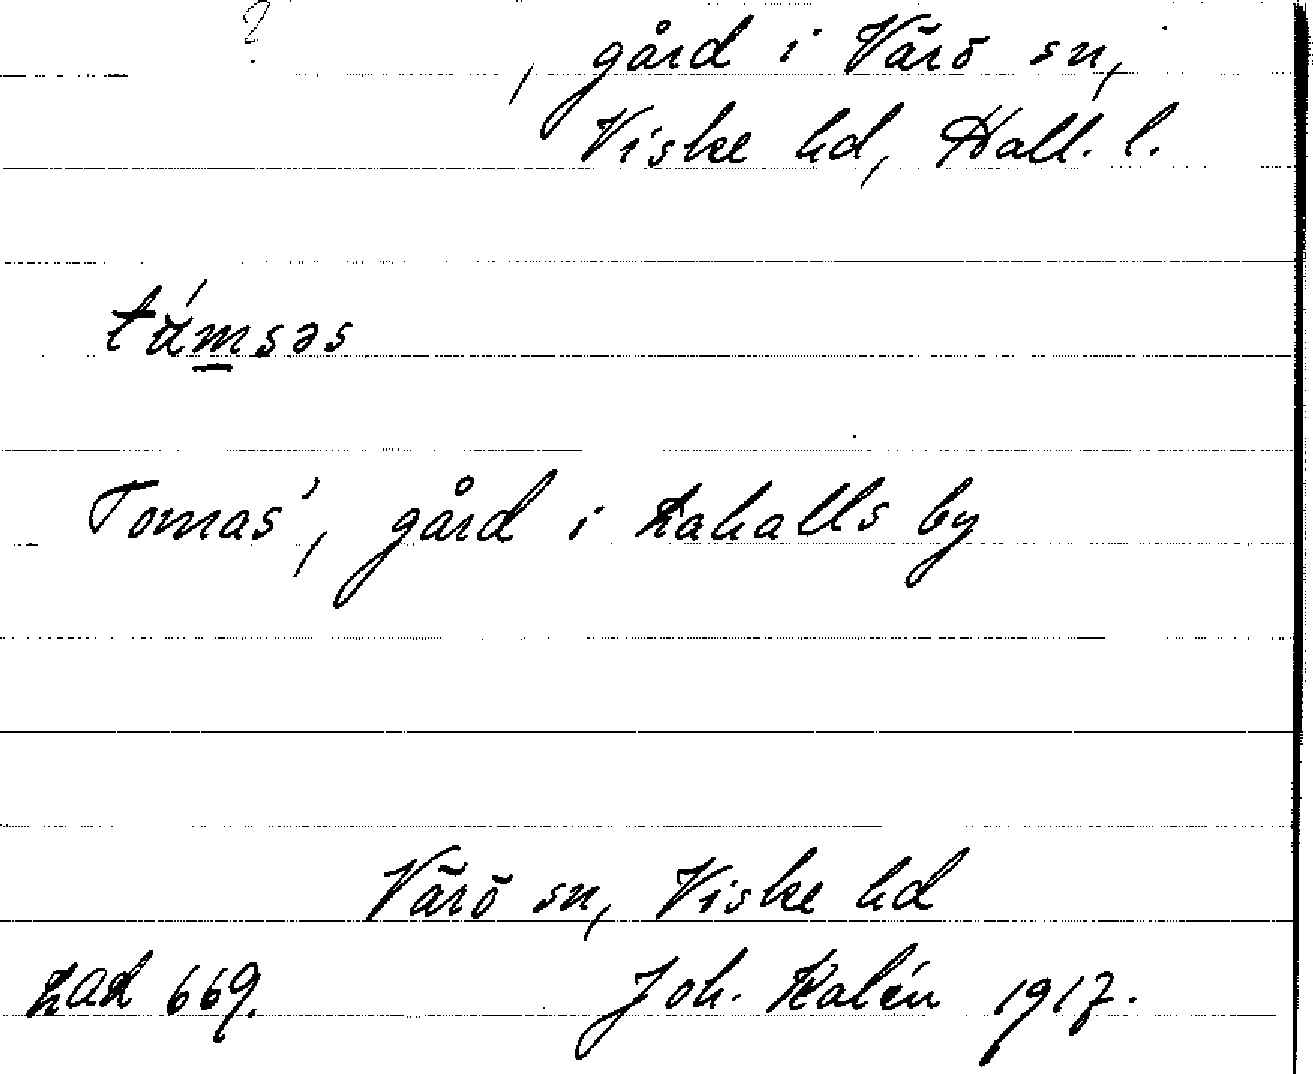 ?
, gård i Värö sn,
Viske hd, Hall. l.
tám̲səs
Tomas', gård i Kahalls by
Värö sn, Viske hd
Lad 669. Joh. Kalén 1917.